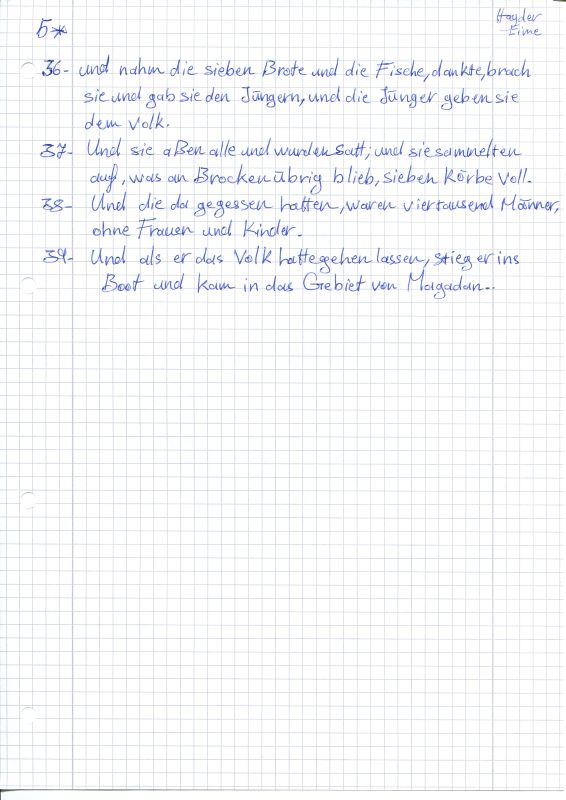 5*
Hayder
Eime
36- und nahm die sieben Brote und die Fische, dankte, brach
sie und gab sie den Jüngern, und die Jünger geben sie
dem Volk.
37- Und sie aßen alle und wurden satt; und sie sammelten
auf, was an Brocken übrig blieb, sieben Körbe voll.
38- Und die da gegessen hatten, waren viertausend Männer,
ohne Frauen und Kinder.
39- Und als er das Volk hatte gehen lassen, stieg er ins
Boot und kam in das Gebiet von Magadan..